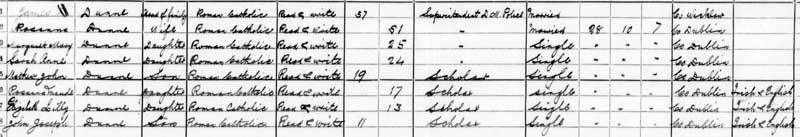 James Duane Head of Family Roman Catholic Read & write 57 Superintendent D M Police Married Co Wicklow
Rossana Duane Wife Roman Catholic Read & write 51 - Married 28 10 7 Co Dublin
Margaret Mary Duane Daughter Roman Catholic Read & write 25 - Single - - - Co Dublin
Sarah Anne Duane Daughter Roman Catholic Read & write 24 - Single - - - Co Dublin
Mathew John Duane Son Roman Catholic Read & write 19 Scholar Single - - - Co Dublin
Duane Daughter Roman Catholic Read & write 17 Scholar Single - - - Co Dublin Irish & English
Duane Daughter Roman Catholic Read & write 13 Scholar Single - - - Co Dublin Irish & English
John Joseph Duane Son Roman Catholic Read & write 11 Scholar Single - - - Co Dublin Irish & English